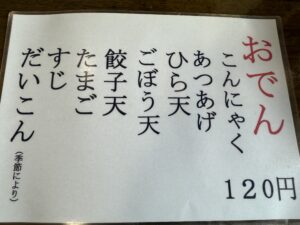 おでん
こんにゃく
あつあげ
ひら天
ごぼう天
餃子天
たまご
すじ
だいこん
(季節により)
120円